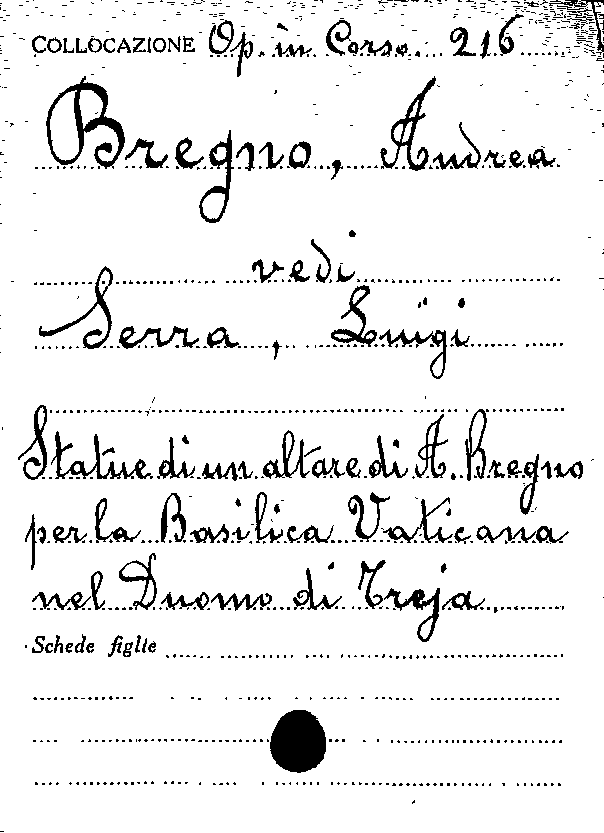 COLLOCAZIONE Op. in Corso. 216
Bregno, Andrea
vedi
Serra, Luigi
Statue di un altare di A. Bregno
per la Basilica Vaticana
nel Duomo di Treja.
Schede figlie